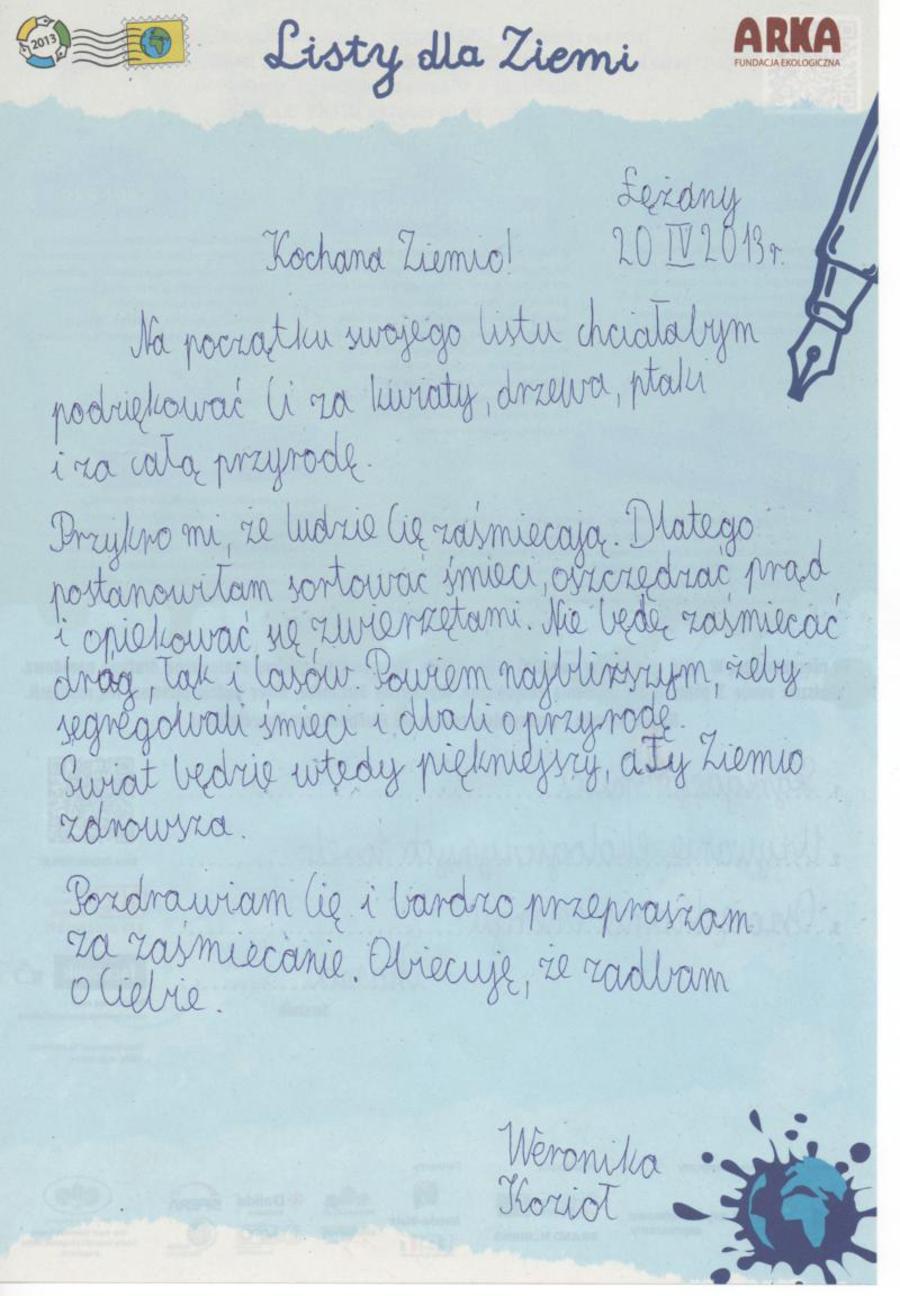 2013
Listy dla Ziemi
ARKA
FUNDACJA EKOLOGICZNA
Łężany
20 IV 2013 r.
Kochana Ziemio!
Na początku swojego listu chciałabym
podziękować Ci za kwiaty, drzewa, ptaki
i za całą przyrodę.
Przykro mi, że ludzie Cię zaśmiecają. Dlatego
postanowiłam sortować śmieci, oszczędzać prąd
i opiekować się zwierzętami. Nie będę zaśmiecać
dróg, łąk i lasów. Powiem najbliższym, żeby
segregowali śmieci i dbali o przyrodę.
Świat będzie wtedy piękniejszy, a Ty Ziemio
zdrowsza.
Pozdrawiam Cię i bardzo przepraszam
za zaśmiecanie. Obiecuję, że zadbam
o Ciebie.
Weronika
Kozioł